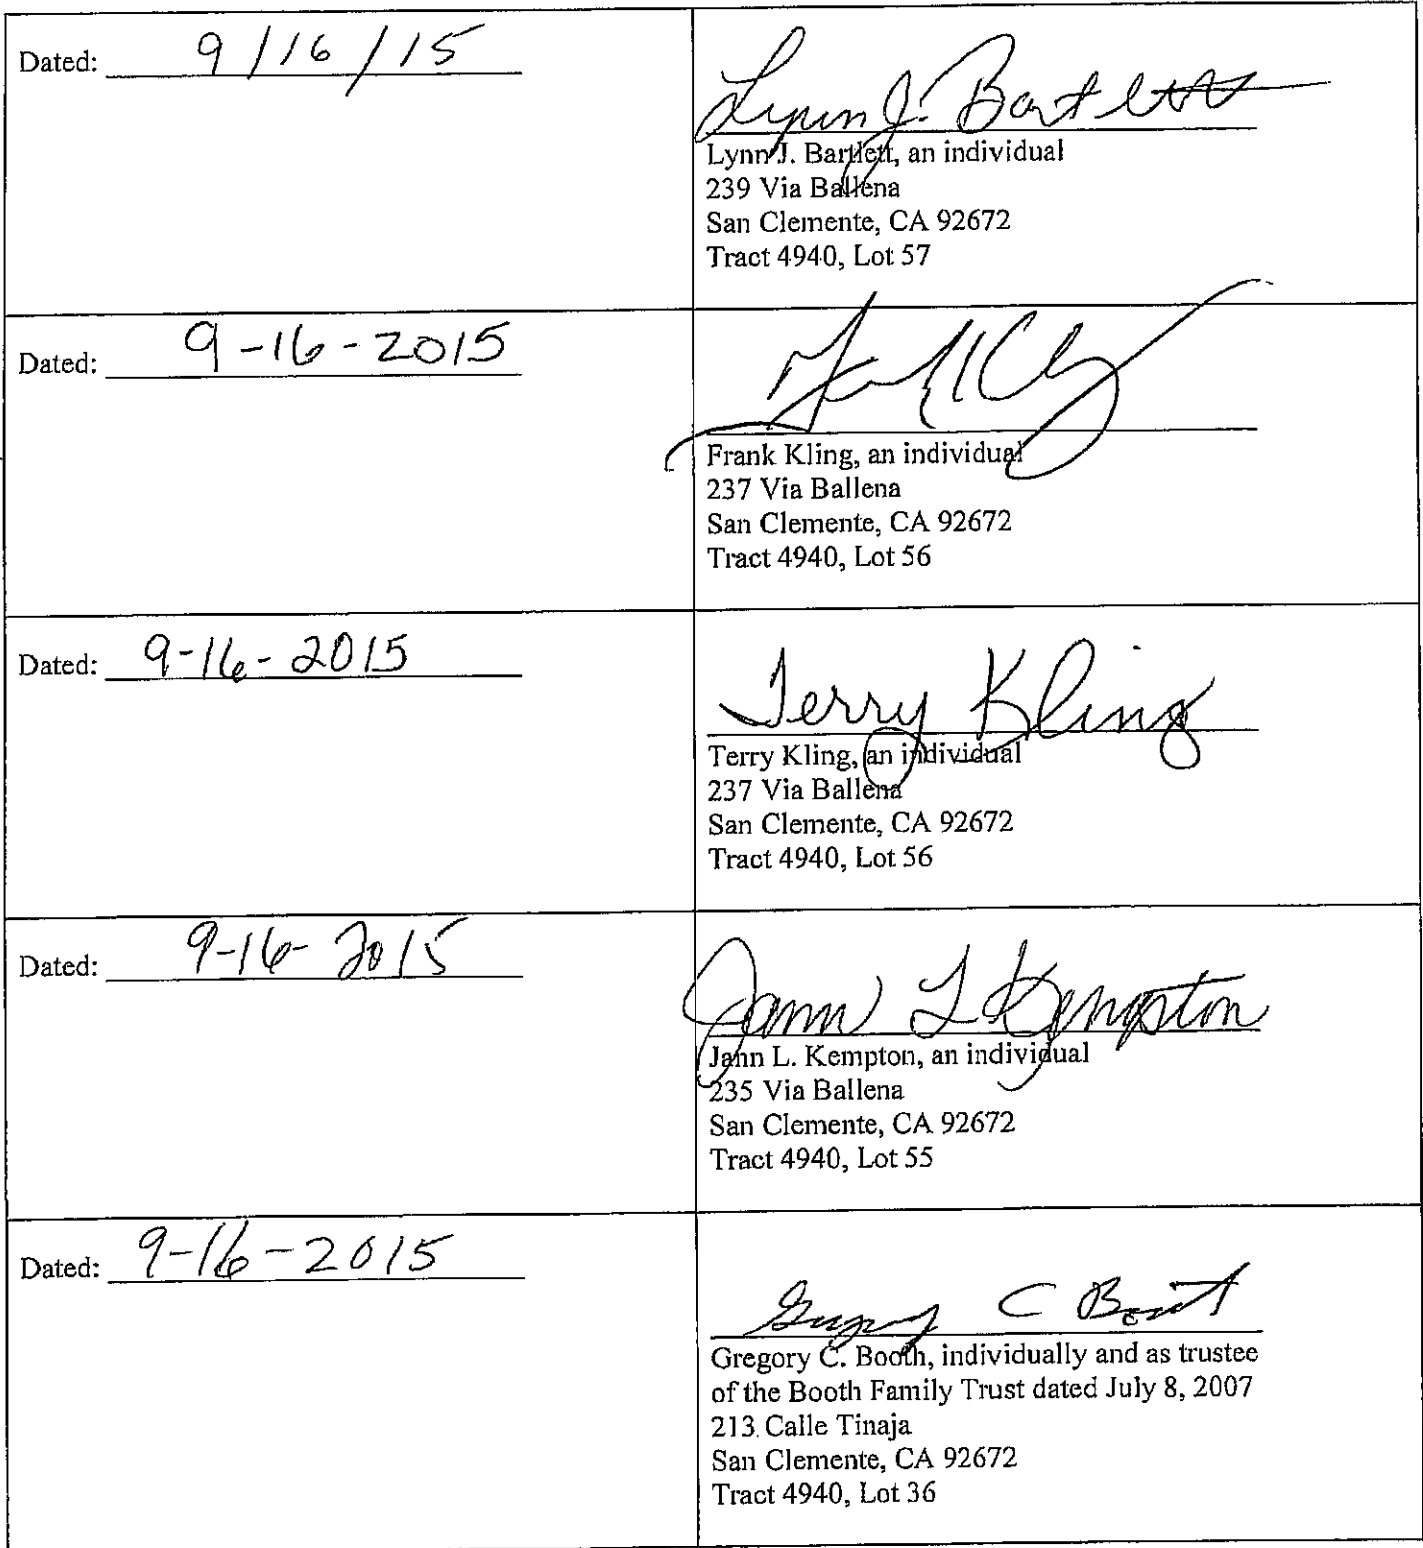 Dated: 9/16/15
Lynn J. Bartlett
Lynn J. Bartlett, an individual
239 Via Ballena
San Clemente, CA 92672
Tract 4940, Lot 57
Dated: 9-16-2015
Frank Kling, an individual
237 Via Ballena
San Clemente, CA 92672
Tract 4940, Lot 56
Dated: 9-16-2015
Terry Kling
Terry Kling, an individual
237 Via Ballena
San Clemente, CA 92672
Tract 4940, Lot 56
Dated: 9-16-2015
Jann L Kempton
Jann L. Kempton, an individual
235 Via Ballena
San Clemente, CA 92672
Tract 4940, Lot 55
Dated: 9-16-2015
Gregory C Booth
Gregory C. Booth, individually and as trustee
of the Booth Family Trust dated July 8, 2007
213 Calle Tinaja
San Clemente, CA 92672
Tract 4940, Lot 36